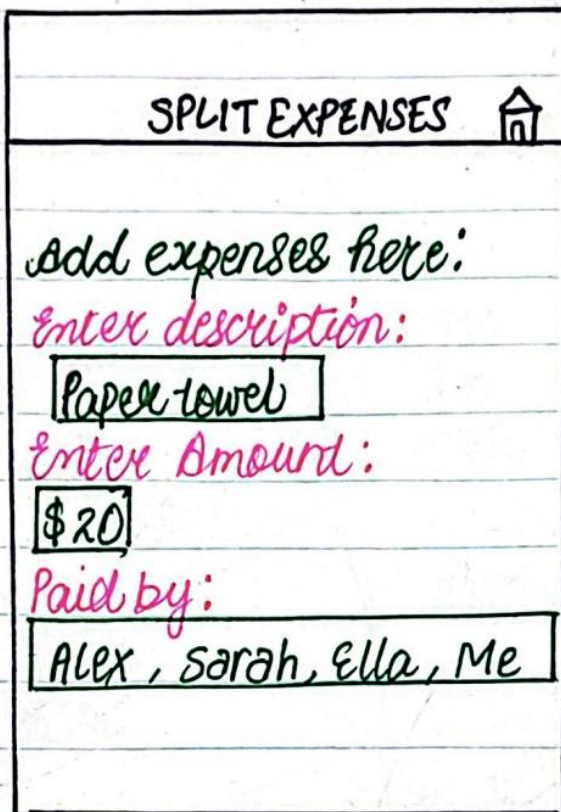 SPLIT EXPENSES
Add expenses here:
Enter description:
Paper towel
Enter Amount:
$20
Paid by:
Alex, Sarah, Ella, Me